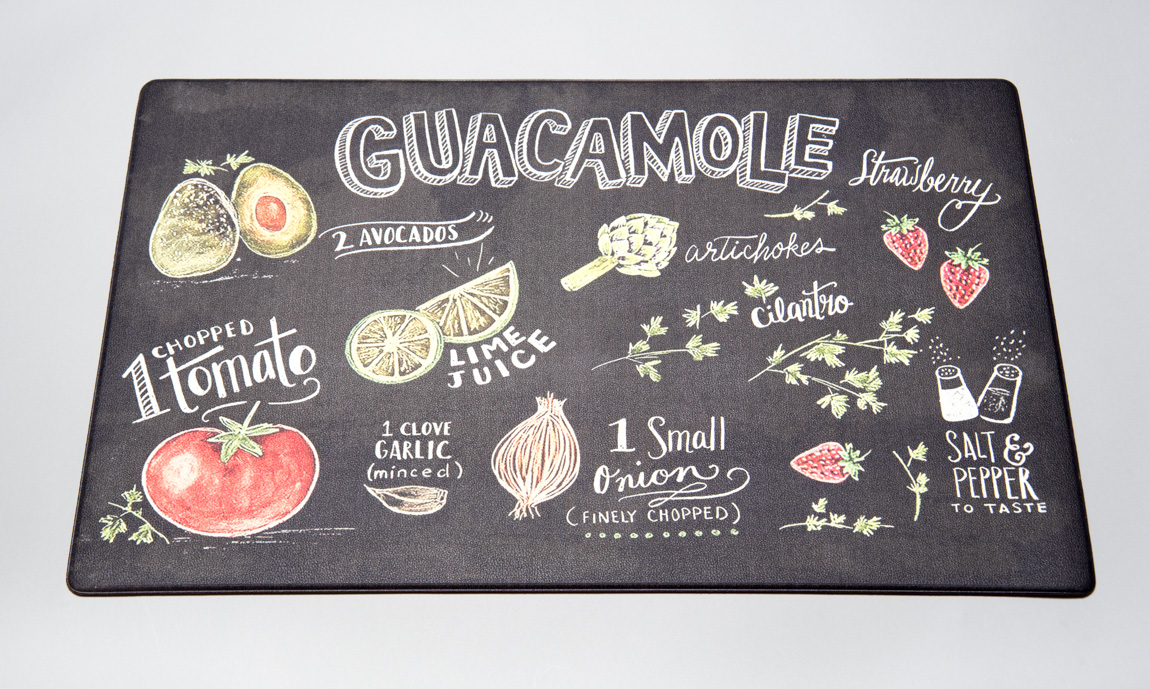 GUACAMOLE
Strawberry
2 AVOCADOS
artichokes
cilantro
CHOPPED
1 tomato
LIME
JUICE
1 CLOVE
GARLIC
(minced)
1 Small
Onion
(FINELY CHOPPED)
SALT &
PEPPER
TO TASTE